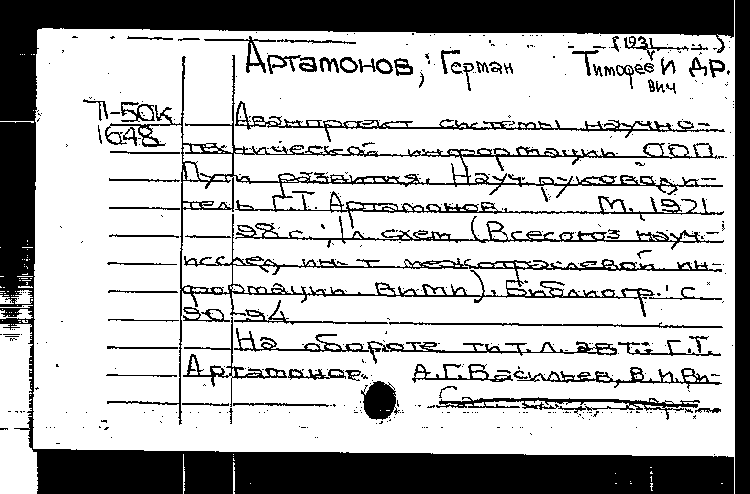 (1931 )
Артамонов, Герман Тимофеевич И ДР.
П-50к Аванпроект системы научно-
1648 технической информации ООП.
Пути развития. Науч. руководи-
тель Г.Т. Артамонов. М., 1971
98 с.; 1 л. схем (Всесоюз науч.-
исслед ин-т межотраслевой ин-
формации. ВИМИ). Библиогр.: с.
90-94
На обороте тит. л. авт.: Г.Т.
Артамонов. А.Г. Васильев, В.И. Ви-